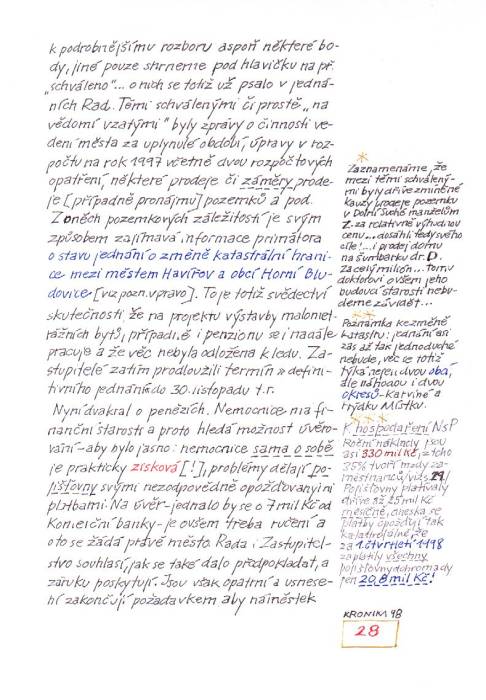 k podrobnějšímu rozboru aspoň některé bo-
dy, jiné pouze shrneme pod hlavičku na př.
„schváleno"... o nich se totiž už psalo v jedná-
ních Rad. Těmi schválenými či prostě „na
vědomí vzatými" byly zprávy o činnosti ve-
dení města za uplynulé období, úpravy v roz-
počtu na rok 1997 včetně dvou rozpočtových
opatření, některé prodeje či záměry prode-
je [případně pronájmu] pozemků a pod.
Z oněch pozemkových záležitostí je svým
způsobem zajímavá informace primátora
o stavu jednání o změně katastrální hrani-
ce mezi městem Havířov a obcí Horní Blu-
dovice [viz pozn. vpravo]. To je totiž svědectví
skutečnosti, že na projektu výstavby malomet-
rážních bytů, případně i penzionu se i nadále
pracuje a že věc nebyla odložena k ledu. Za-
stupitelé zatím prodloužili termín » defini-
tivního jednání« do 30. listopadu t.r.
Nyní dvakrát o penězích. Nemocnice má fi-
nanční starosti a proto hledá možnost úvěro-
vání – aby bylo jasno: nemocnice sama o sobě
je prakticky zisková [!], problémy dělají po-
jišťovny svými nezodpovědně opožďovanými
platbami. Na úvěr – jednalo by se o 7 mil Kč od
Komerční banky – je ovšem třeba ručení a
o to se žádá právě město. Rada i Zastupitel-
stvo souhlasí, jak se také dalo předpokládat, a
záruku poskytují. Jsou však opatrní a usnese-
ní zakončují požadavkem aby náměstek
Zaznamenáme, že
mezi těmi schválený-
mi byly dříve zmíněné
kauzy prodeje pozemku
v Dolní Suché manželům
Z. za relativně výhodnou
cenu... dosáhli tedy svého
cíle!... i prodej domu
na Šumbarku dr. D.
Za celý milión... tomu
doktorovi ovšem jeho
budoucí starosti nebu-
deme závidět...
Poznámka ke změně
katastru: jednání asi
zas až tak jednoduché
nebude, věc se totiž
týká nejen dvou obcí,
ale náhodou i dvou
okresů – Karviné a
Frýdku Místku.
K hospodaření NsP
Roční náklady jsou
asi 330 mil Kč, z toho
35% tvoří mzdy za-
městnanců/viz s. 29/
Pojišťovny platívaly
dříve až 25 mil Kč
měsíčně, dneska se
platby opožďují tak
katastrofálně, že
za 1. čtvrtletí 1998
zaplatily všechny
pojišťovny dohromady
jen 20,8 mil Kč!
KRONIKA 98
28